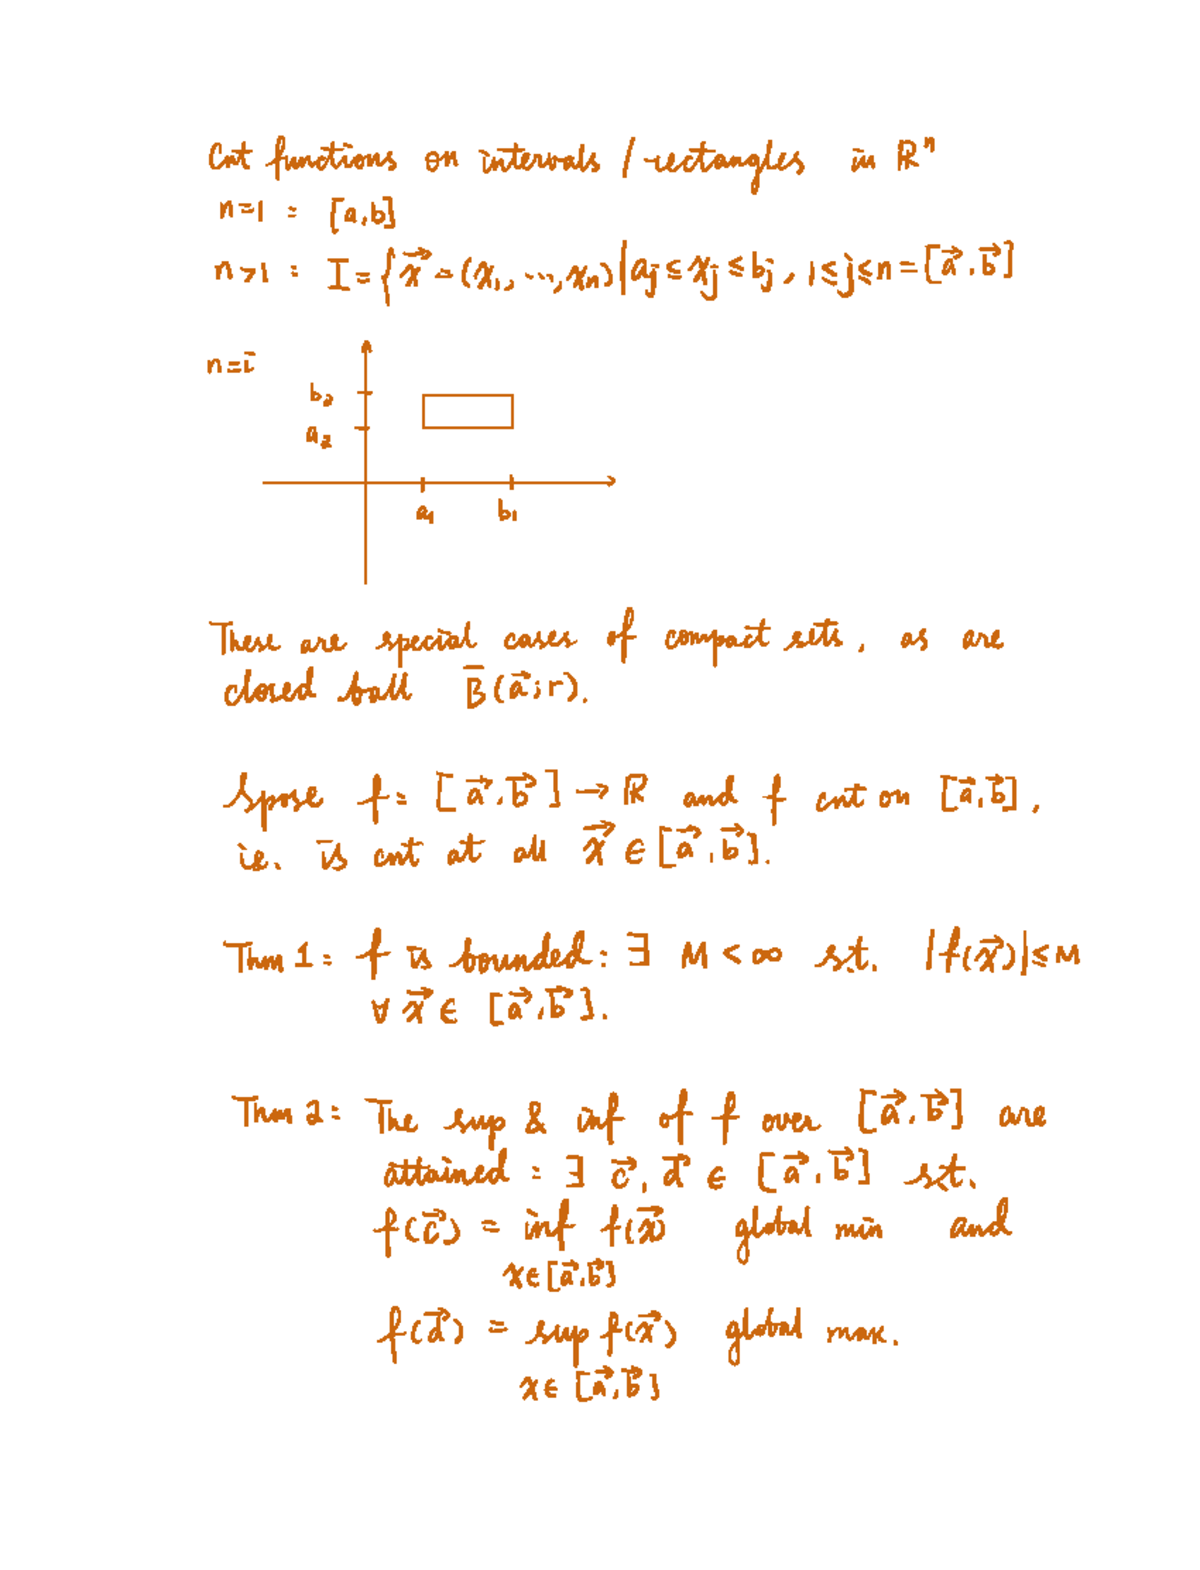 Cnt functions on intervals / rectangles in ℝⁿ
n=1 : [a,b]
n>1 : I = {x⃗ = (x₁, ..., xₙ) | aⱼ ≤ xⱼ ≤ bⱼ, 1≤j≤n = [a⃗, b⃗]
n=2
b₂
a₂
a₁ b₁
These are special cases of compact sets, as are
closed ball B̄(a⃗;r).
Spose f: [a⃗, b⃗] → ℝ and f cnt on [a⃗, b⃗],
ie. is cnt at all x⃗ ∈ [a⃗, b⃗].
Thm 1: f is bounded: ∃ M < ∞ s.t. |f(x⃗)| ≤ M
∀ x⃗ ∈ [a⃗, b⃗].
Thm 2: The sup & inf of f over [a⃗, b⃗] are
attained: ∃ c⃗, d⃗ ∈ [a⃗, b⃗] s.t.
f(c⃗) = inf f(x⃗) global min and
x∈[a⃗, b⃗]
f(d⃗) = sup f(x⃗) global max.
x∈ [a⃗, b⃗]